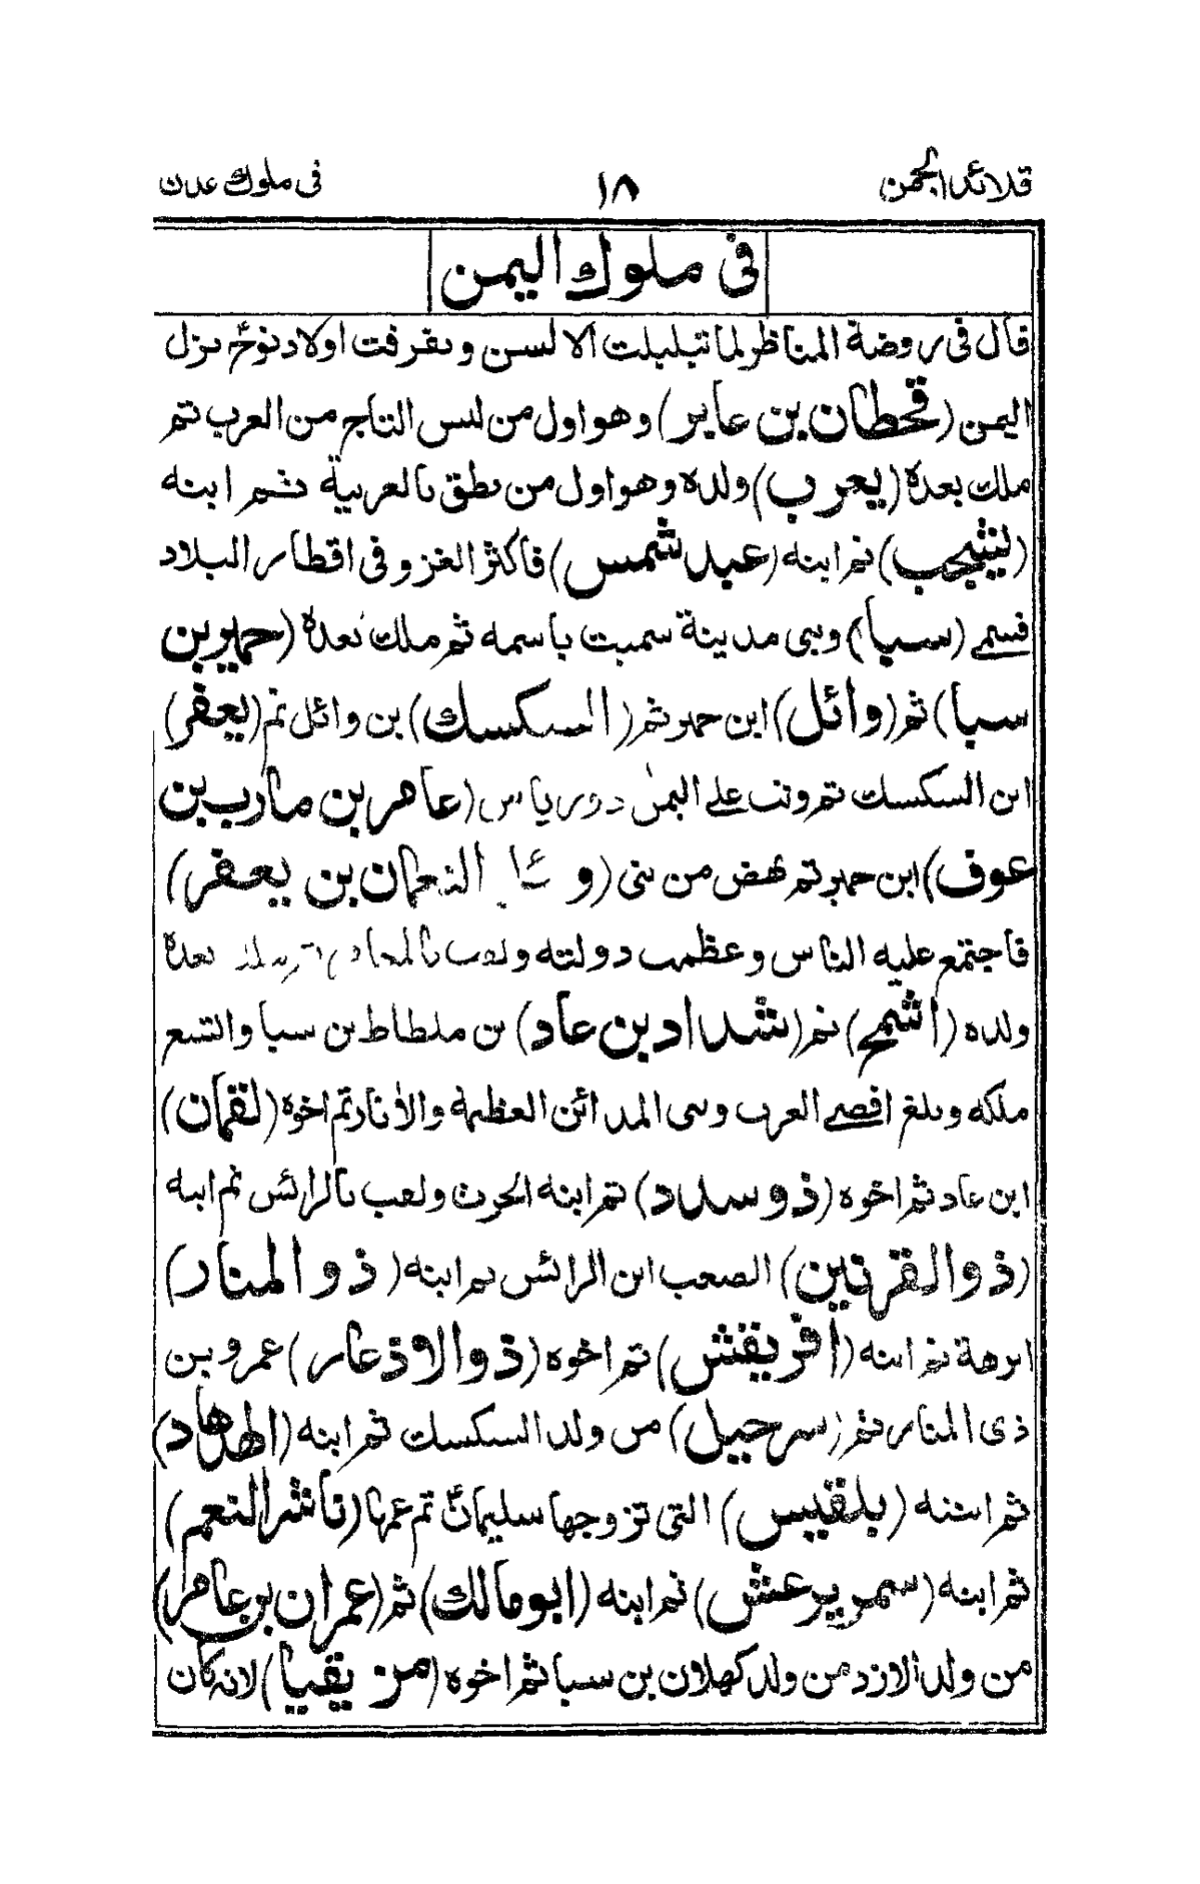 قلائد الجمن
١٨
فى ملوك عدن
فى ملوك اليمن
قال فى روضة المناظر لما تبلبلت الالسن وتفرقت اولاد نوح نزل
اليمن (قحطان بن عابر) وهو اول من لبس التاج من العرب ثم
ملك بعده (يعرب) ولده وهو اول من نطق بالعربية ثم ابنه
(يشجب) ثم ابنه (عبد شمس) فاكثر الغزو فى اقطار البلاد
فسمے (سبا) وبنى مدينة سميت باسمه ثم ملك بعده (حمير بن
سبا) ثم (وائل) ابن حمير ثم (السكسك) بن وائل ثم (يعفر)
ابن السكسك ثم وثب علے اليمن ذو رياس (عاهر بن مارب بن
عوف) ابن حمير ثم نهض من بنى (و النعمان بن يعفر)
فاجتمع عليه الناس وعظمت دولته ولقب بالمعا بعده
ولده (اشمح) ثم (شداد بن عاد) بن ملطاط بن سبا واتسع
ملكه وبلغ اقصے العرب وبنى المدائن العظيمة والاثار ثم اخوه (لقمان)
ابن عاد ثم اخوه (ذو سدد) ثم ابنه الحرث ولقب بالرائش ثم ابنه
(ذو القرنين) الصعب ابن الرائش ثم ابنه (ذو المنار)
ابرهة ثم ابنه (افريقش) ثم اخوه (ذو الاذعار) عمرو بن
ذى المنار ثم (سرحبيل) من ولد السكسك ثم ابنه (الهدهاد)
ثم ابنته (بلقيس) التى تزوجها سليمان ثم عمها (ناشر النعم)
ثم ابنه (سمر يرعش) ثم ابنه (ابو مالك) ثم (عمران بن عاهر)
من ولد الازد من ولد كهلان بن سبا ثم اخوه (مزيقيا) لانه كان